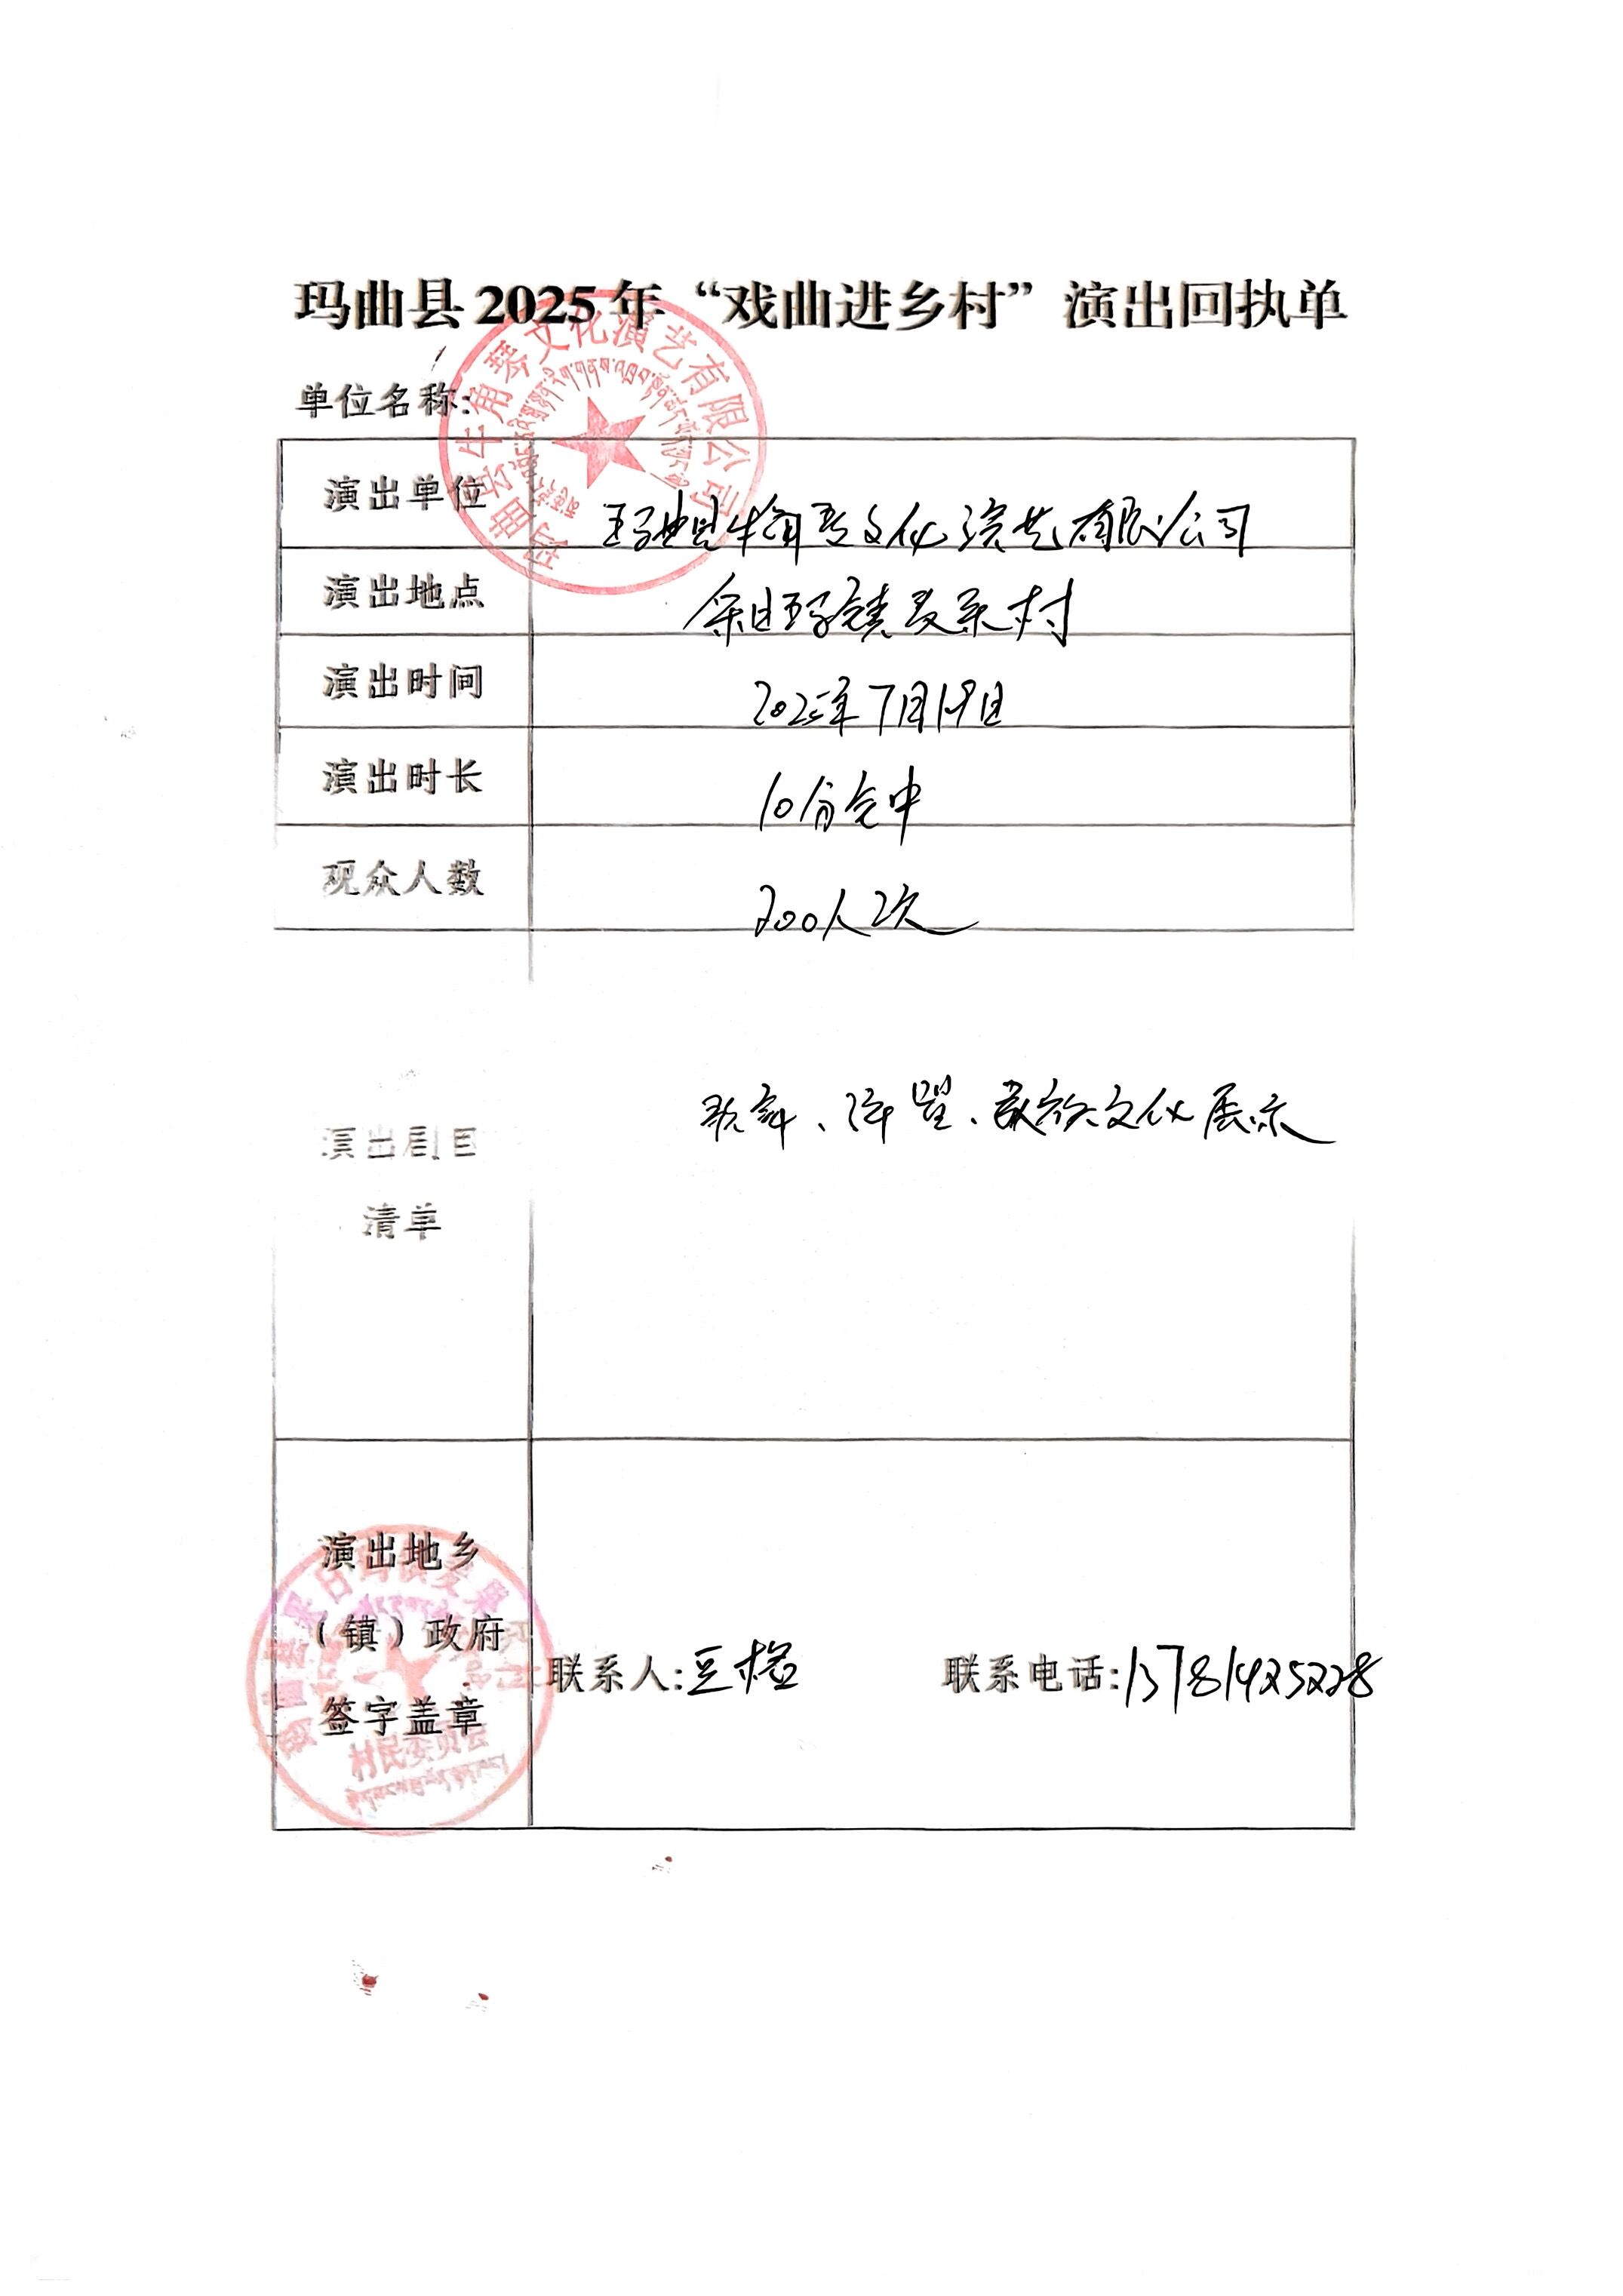 玛曲县2025年“戏曲进乡村”演出回执单
单位名称:
玛曲县牛角琴文化演艺有限公司
演出单位 玛曲县牛角琴文化演艺有限公司
演出地点 采日玛镇麦果村
演出时间 2025年7月19日
演出时长
观众人数 200人次
演出剧目
清单
歌舞、弹唱、民族文化展示
演出地乡
（镇）政府
签字盖章
联系人: 联系电话:
村民委员会